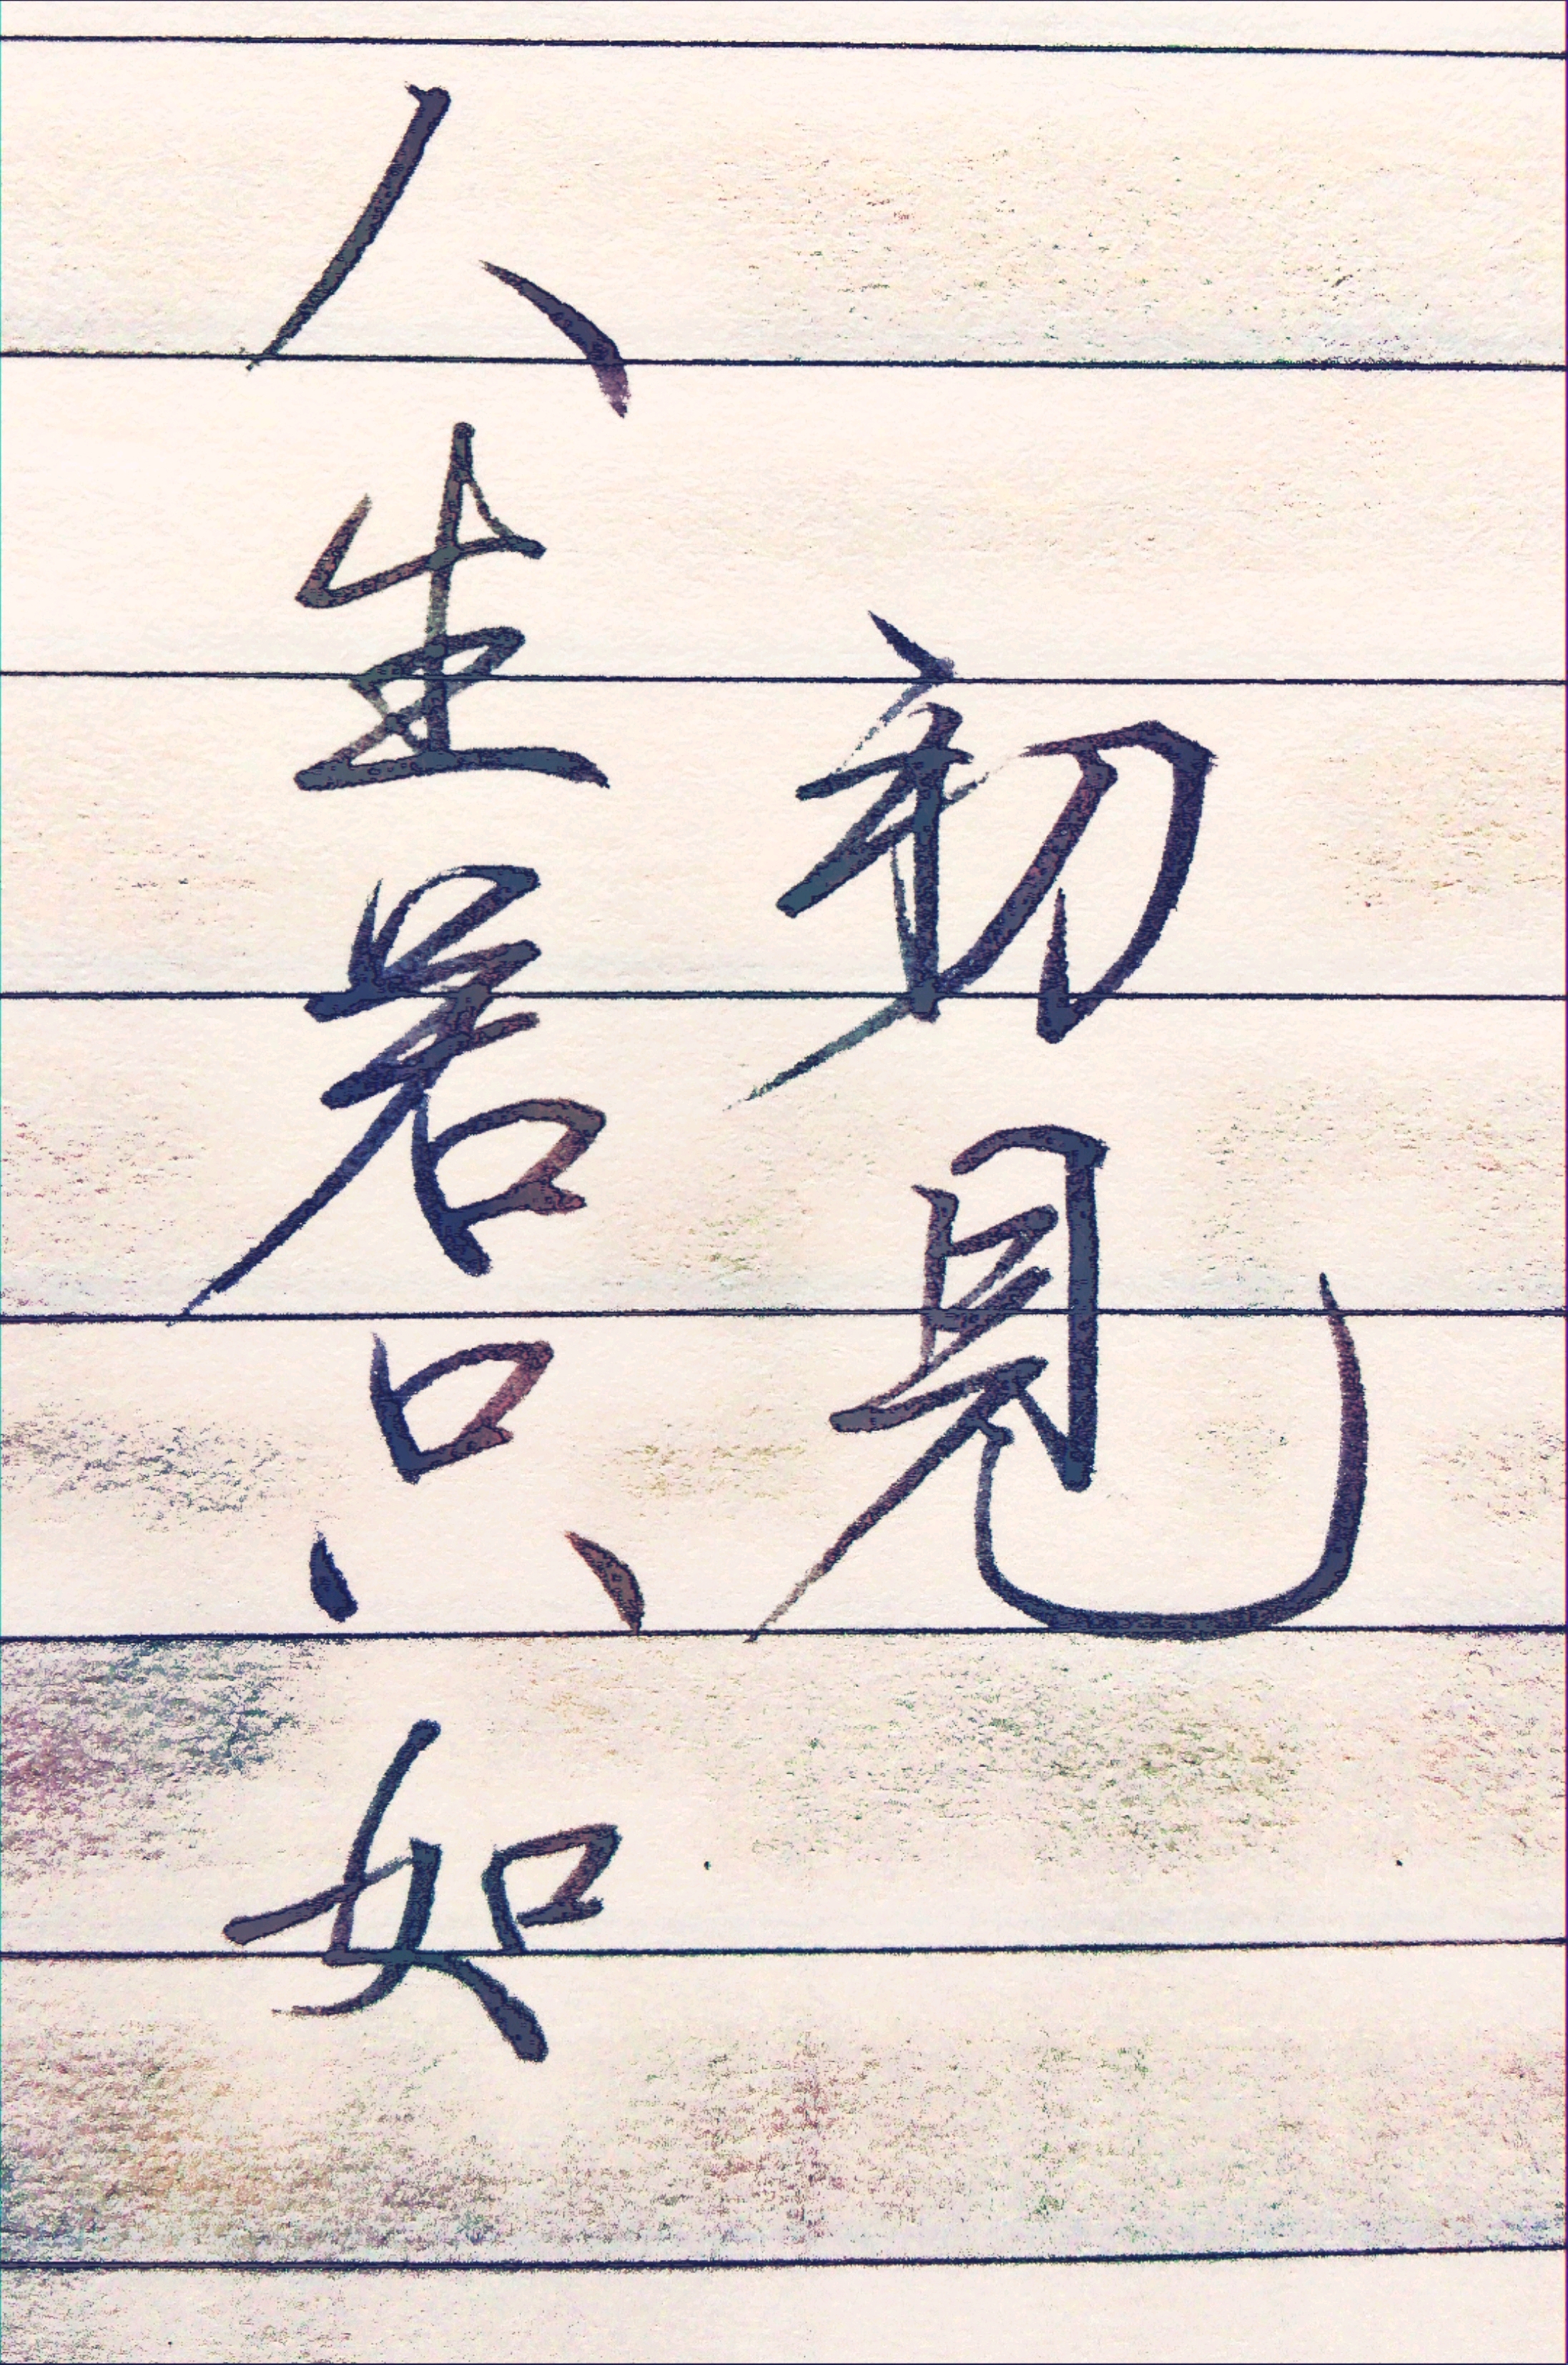 人生若只如
初見